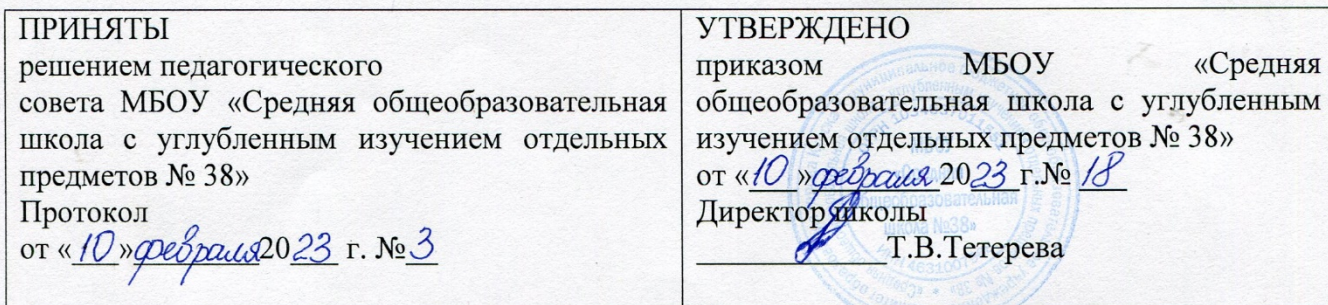 ПРИНЯТЫ
решением педагогического
совета МБОУ «Средняя общеобразовательная
школа с углубленным изучением отдельных
предметов № 38»
Протокол
от «10»февраля2023 г. №3
УТВЕРЖДЕНО
приказом МБОУ «Средняя
общеобразовательная школа с углубленным
изучением отдельных предметов № 38»
от «10»февраля2023 г.№ 18
Директор школы
Т.В.Тетерева
общеобразовательная
школа №38»